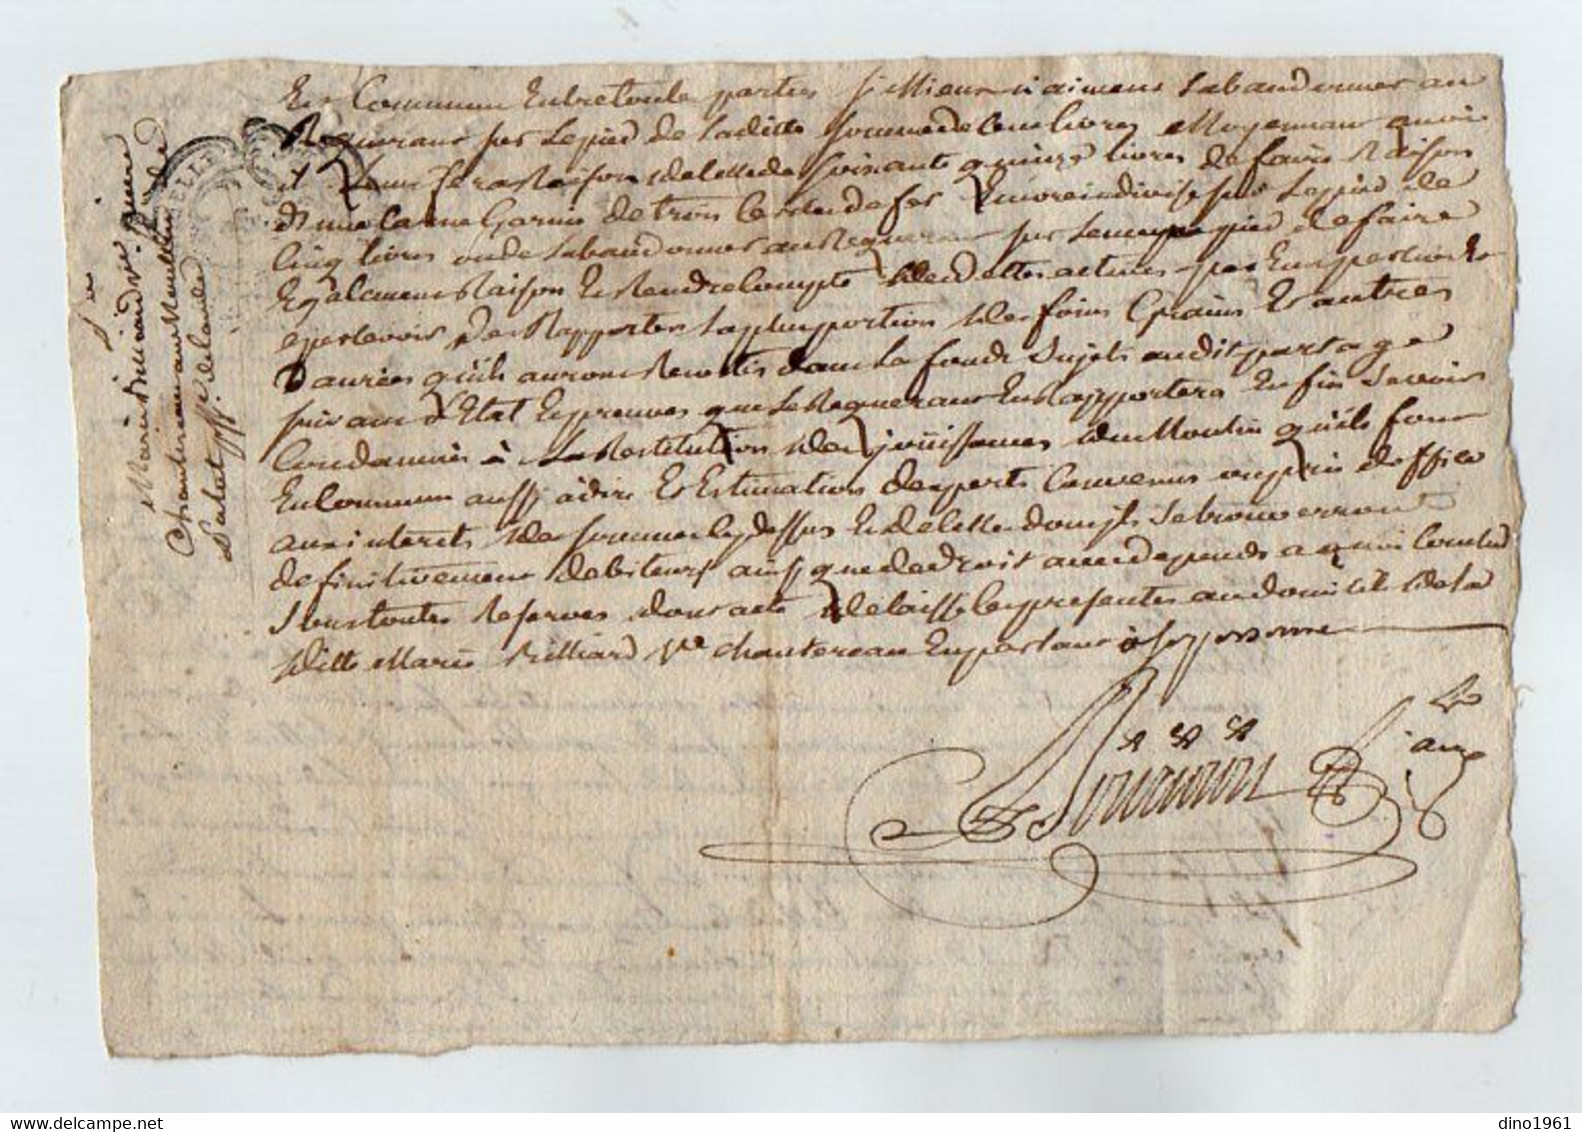 En Commun Entre toute parties sy Mieux n'aiment Labandonner au
Requerant sur Le pied de Laditte somme de Cent livres Moyennant quoi
il Leur fera Raison de celle de soixante quinze livres de faire Raison
d'une Canne Garnie de trois Cercles de fer Encore indivise sur Le pied de
Cinq livres ou de Labandonner au Requerant sur Le meme pied de faire
Egalement Raison Et Rendre Compte des dettes actives par Eux percues Et
a percevoir De Rapporter La plus portion des foins Grains Et autres
Danrées qu'ils auront Recoltis dans Le fonds Sujets audit partage
suivant L'Etat Et preuves que Le Requerant En Rapportera Enfin Se voir
Condamnés à La Restitution des jouissances du Moulin qu'ils font
En Commun aussy à dire Et Estimation d'experts Convenus ou pris d'office
aux interets des sommes cy dessus Et de celles dont ils Se trouverront
definitivement debiteurs ainsy que de droit avec depends a quoi Conclud
Sous toutes Reserves dont acte delaissé Les presentes au domicile de La
ditte Marie Billiard Ve Chantereau En parlant à Sa personne
Marie
Chantereau au Moulin